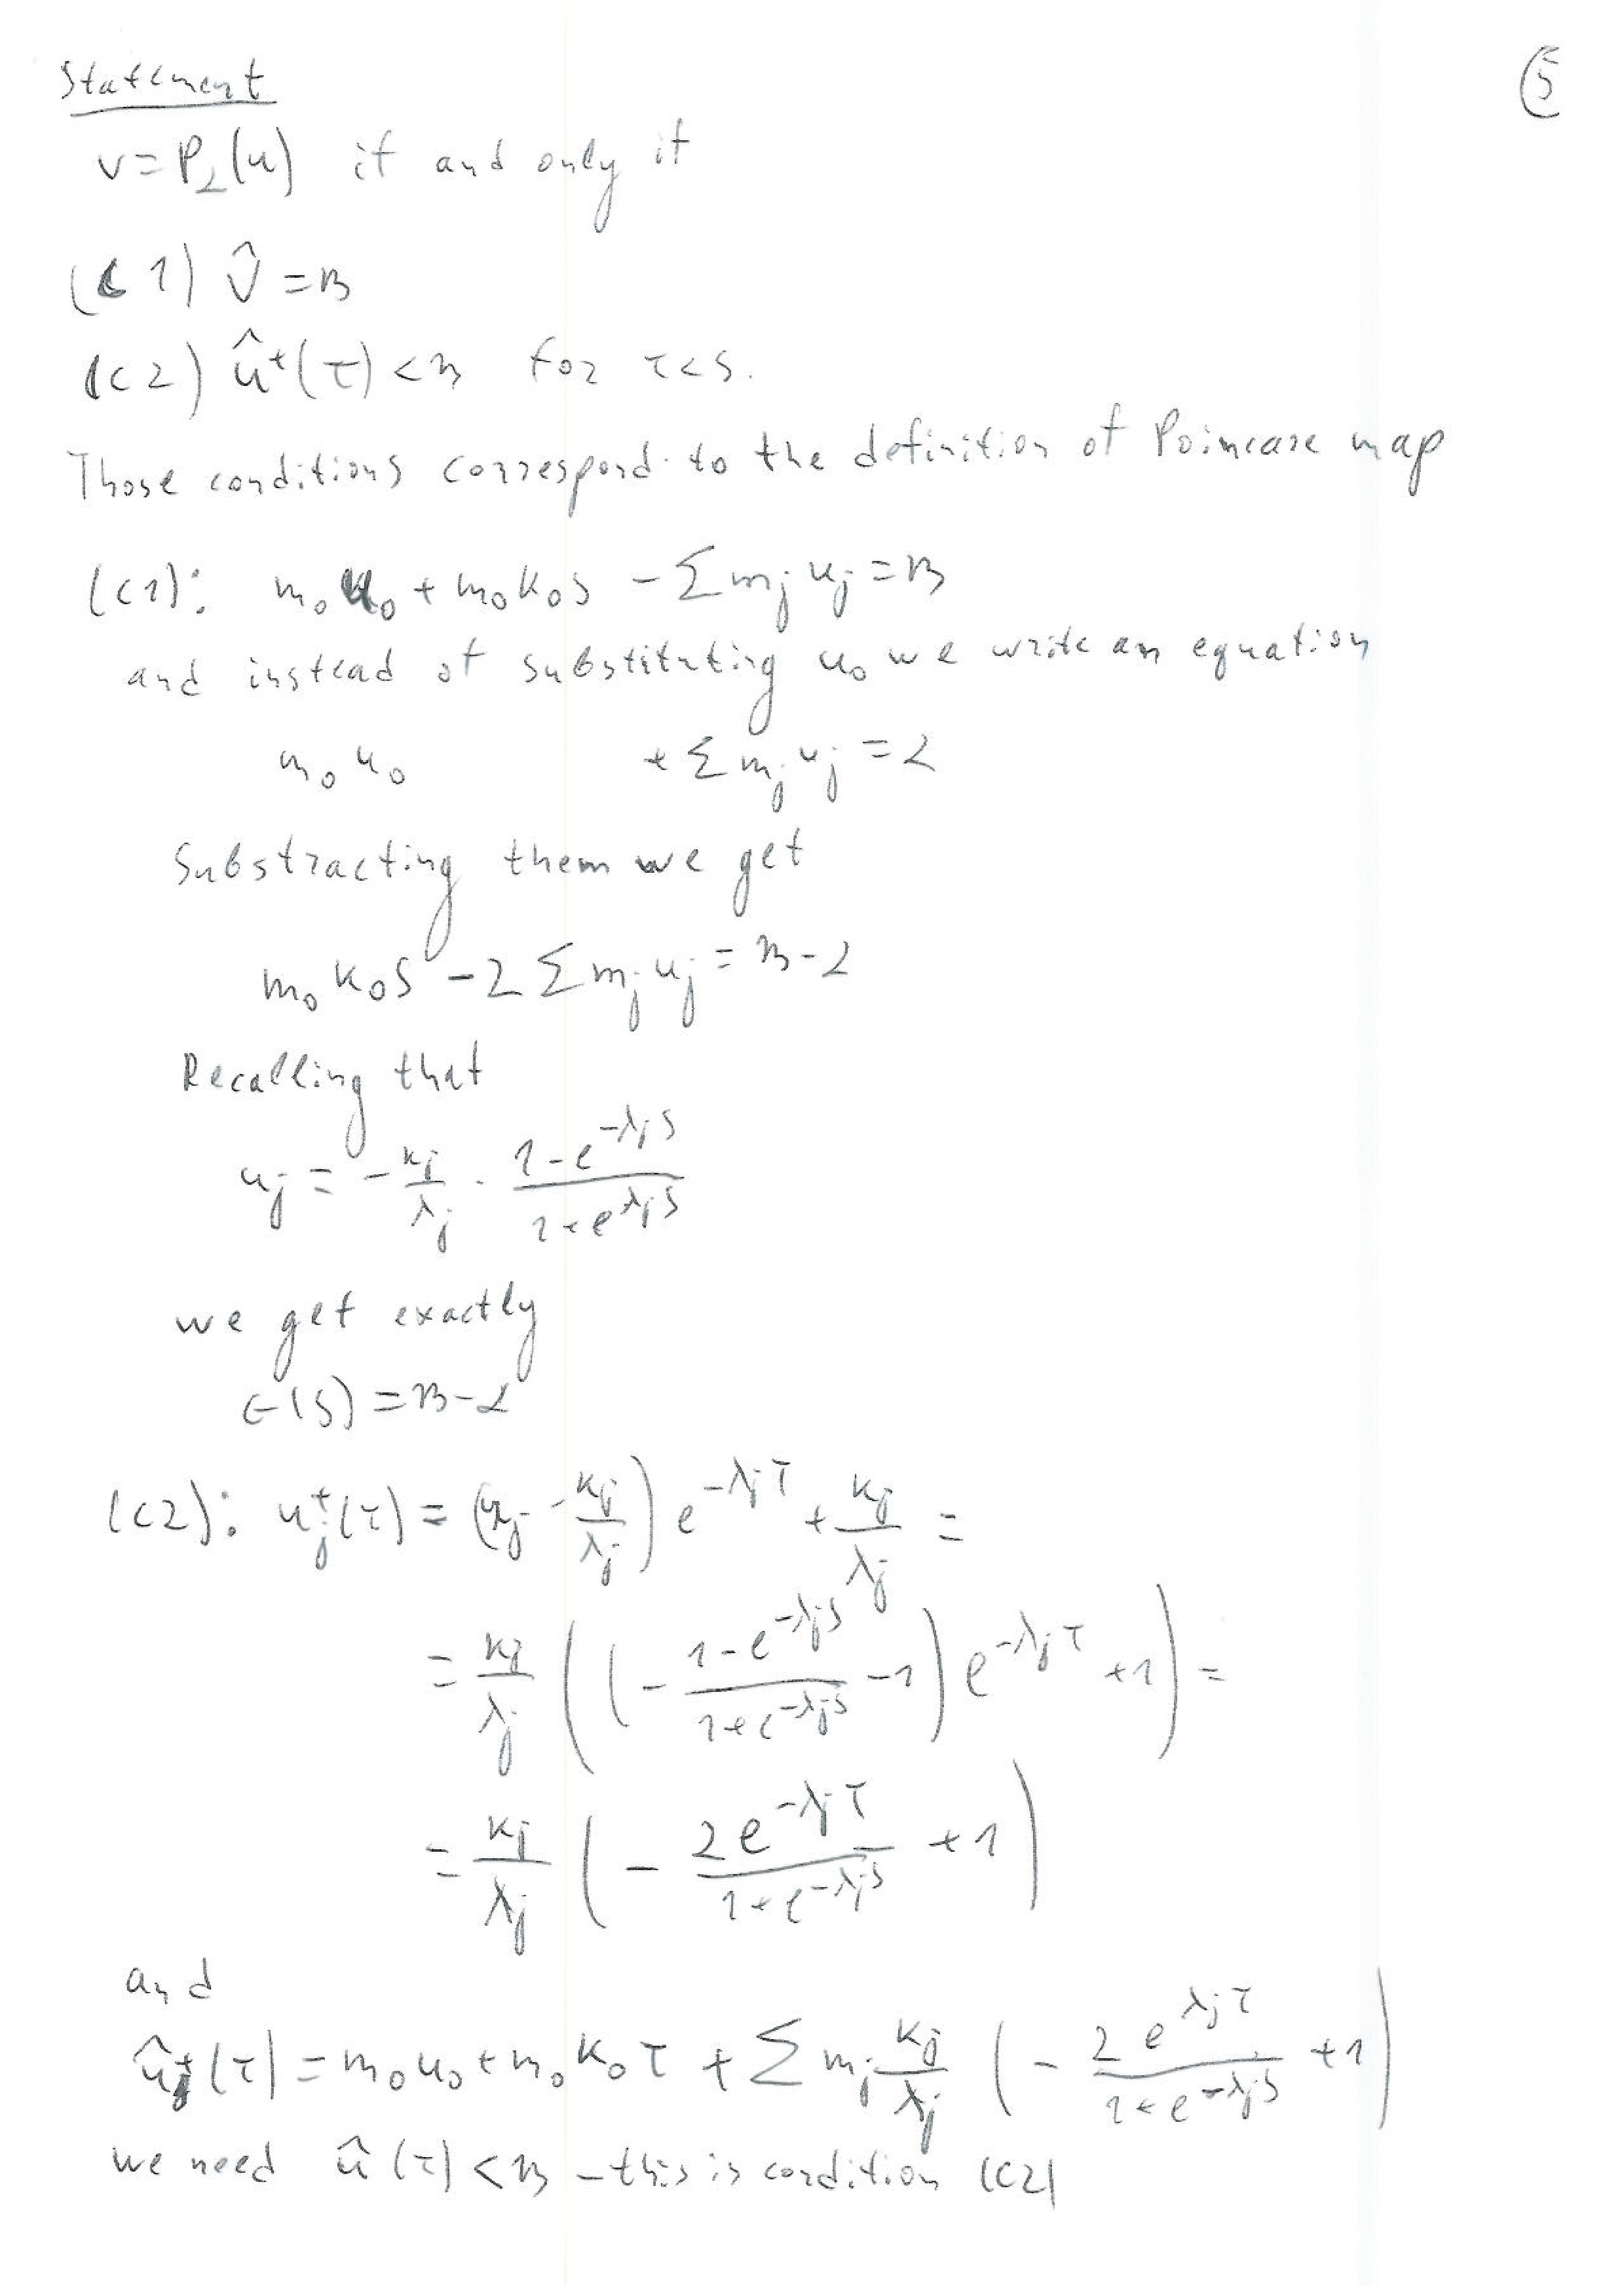 Statement
(5)
v = P_α(u) if and only if
(C1) v̂ = β
(C2) û⁺(τ) < β for τ < s.
Those conditions correspond to the definition of Poincare map
(C1): m₀u₀ + m₀k₀s - Σ mⱼuⱼ = β
and instead of substituting u₀ we write an equation
m₀u₀ + Σ mⱼuⱼ = α
Substracting them we get
m₀k₀s - 2 Σ mⱼuⱼ = β - α
Recalling that
uⱼ = - kⱼ/λⱼ · (1 - e^{-λⱼs})/(1 + e^{λⱼs})
we get exactly
G(s) = β - α
(C2): uⱼ⁺(τ) = (uⱼ - kⱼ/λⱼ) e^{-λⱼτ} + kⱼ/λⱼ =
= kⱼ/λⱼ ((- (1 - e^{-λⱼs})/(1 + e^{-λⱼs}) - 1) e^{-λⱼτ} + 1) =
= kⱼ/λⱼ (- 2e^{-λⱼτ}/(1 + e^{-λⱼs}) + 1)
and
û⁺(τ) = m₀u₀ + m₀k₀τ + Σ mⱼ kⱼ/λⱼ (- 2e^{λⱼτ}/(1 + e^{-λⱼs}) + 1)
we need û(τ) < β - this is condition (C2)